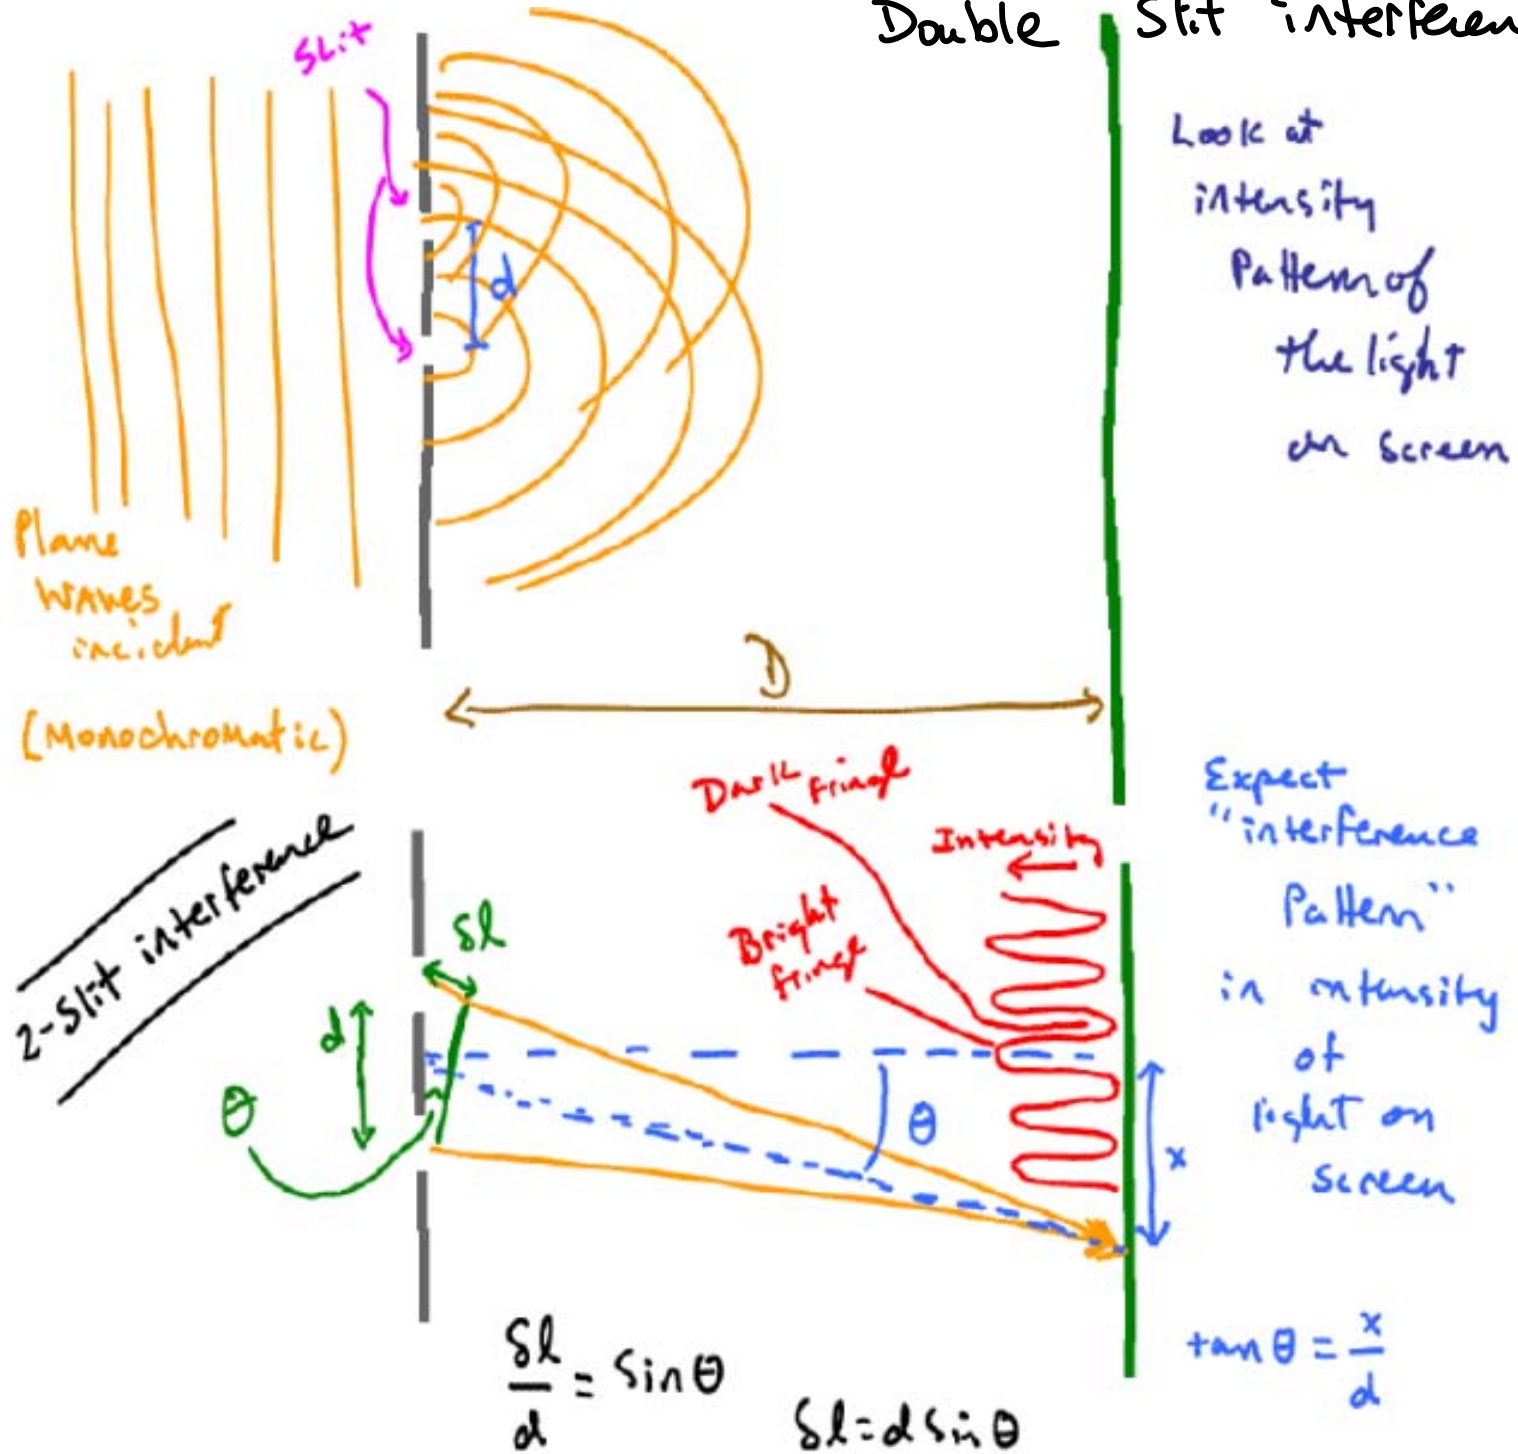 Double Slit interferen
SLit
Look at
intensity
Pattern of
the light
on screen
d
Plane
waves
incident
(Monochromatic)
D
2-Slit interference
Dark fringe
Intensity
Bright
fringe
Expect
"interference
Pattern"
in intensity
of
light on
screen
δl
d
θ
θ
x
δl/d = sinθ
δl = d sinθ
tanθ = x/d